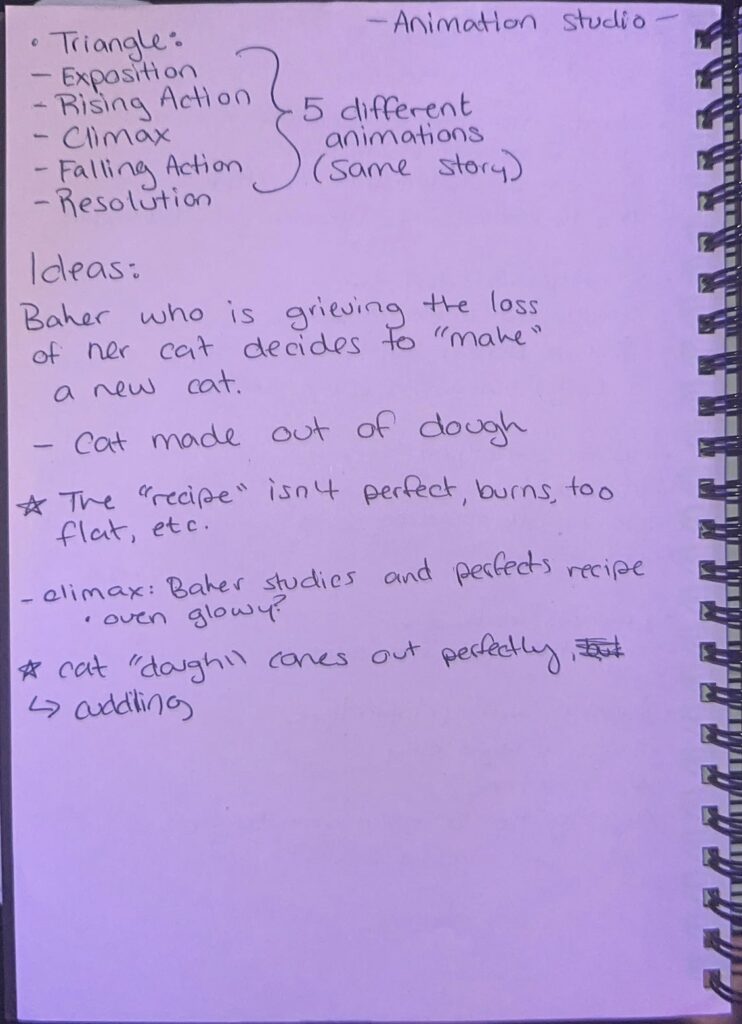 - Animation studio -
• Triangle:
- Exposition
- Rising Action
- Climax
- Falling Action
- Resolution
5 different
animations
(same story)
Ideas:
Baker who is grieving the loss
of her cat decides to "make"
a new cat.
- Cat made out of dough
☆ The "recipe" isn't perfect, burns, too
flat, etc.
- climax: Baker studies and perfects recipe
• oven glowy?
☆ cat "dough" comes out perfectly,
↳ cuddling